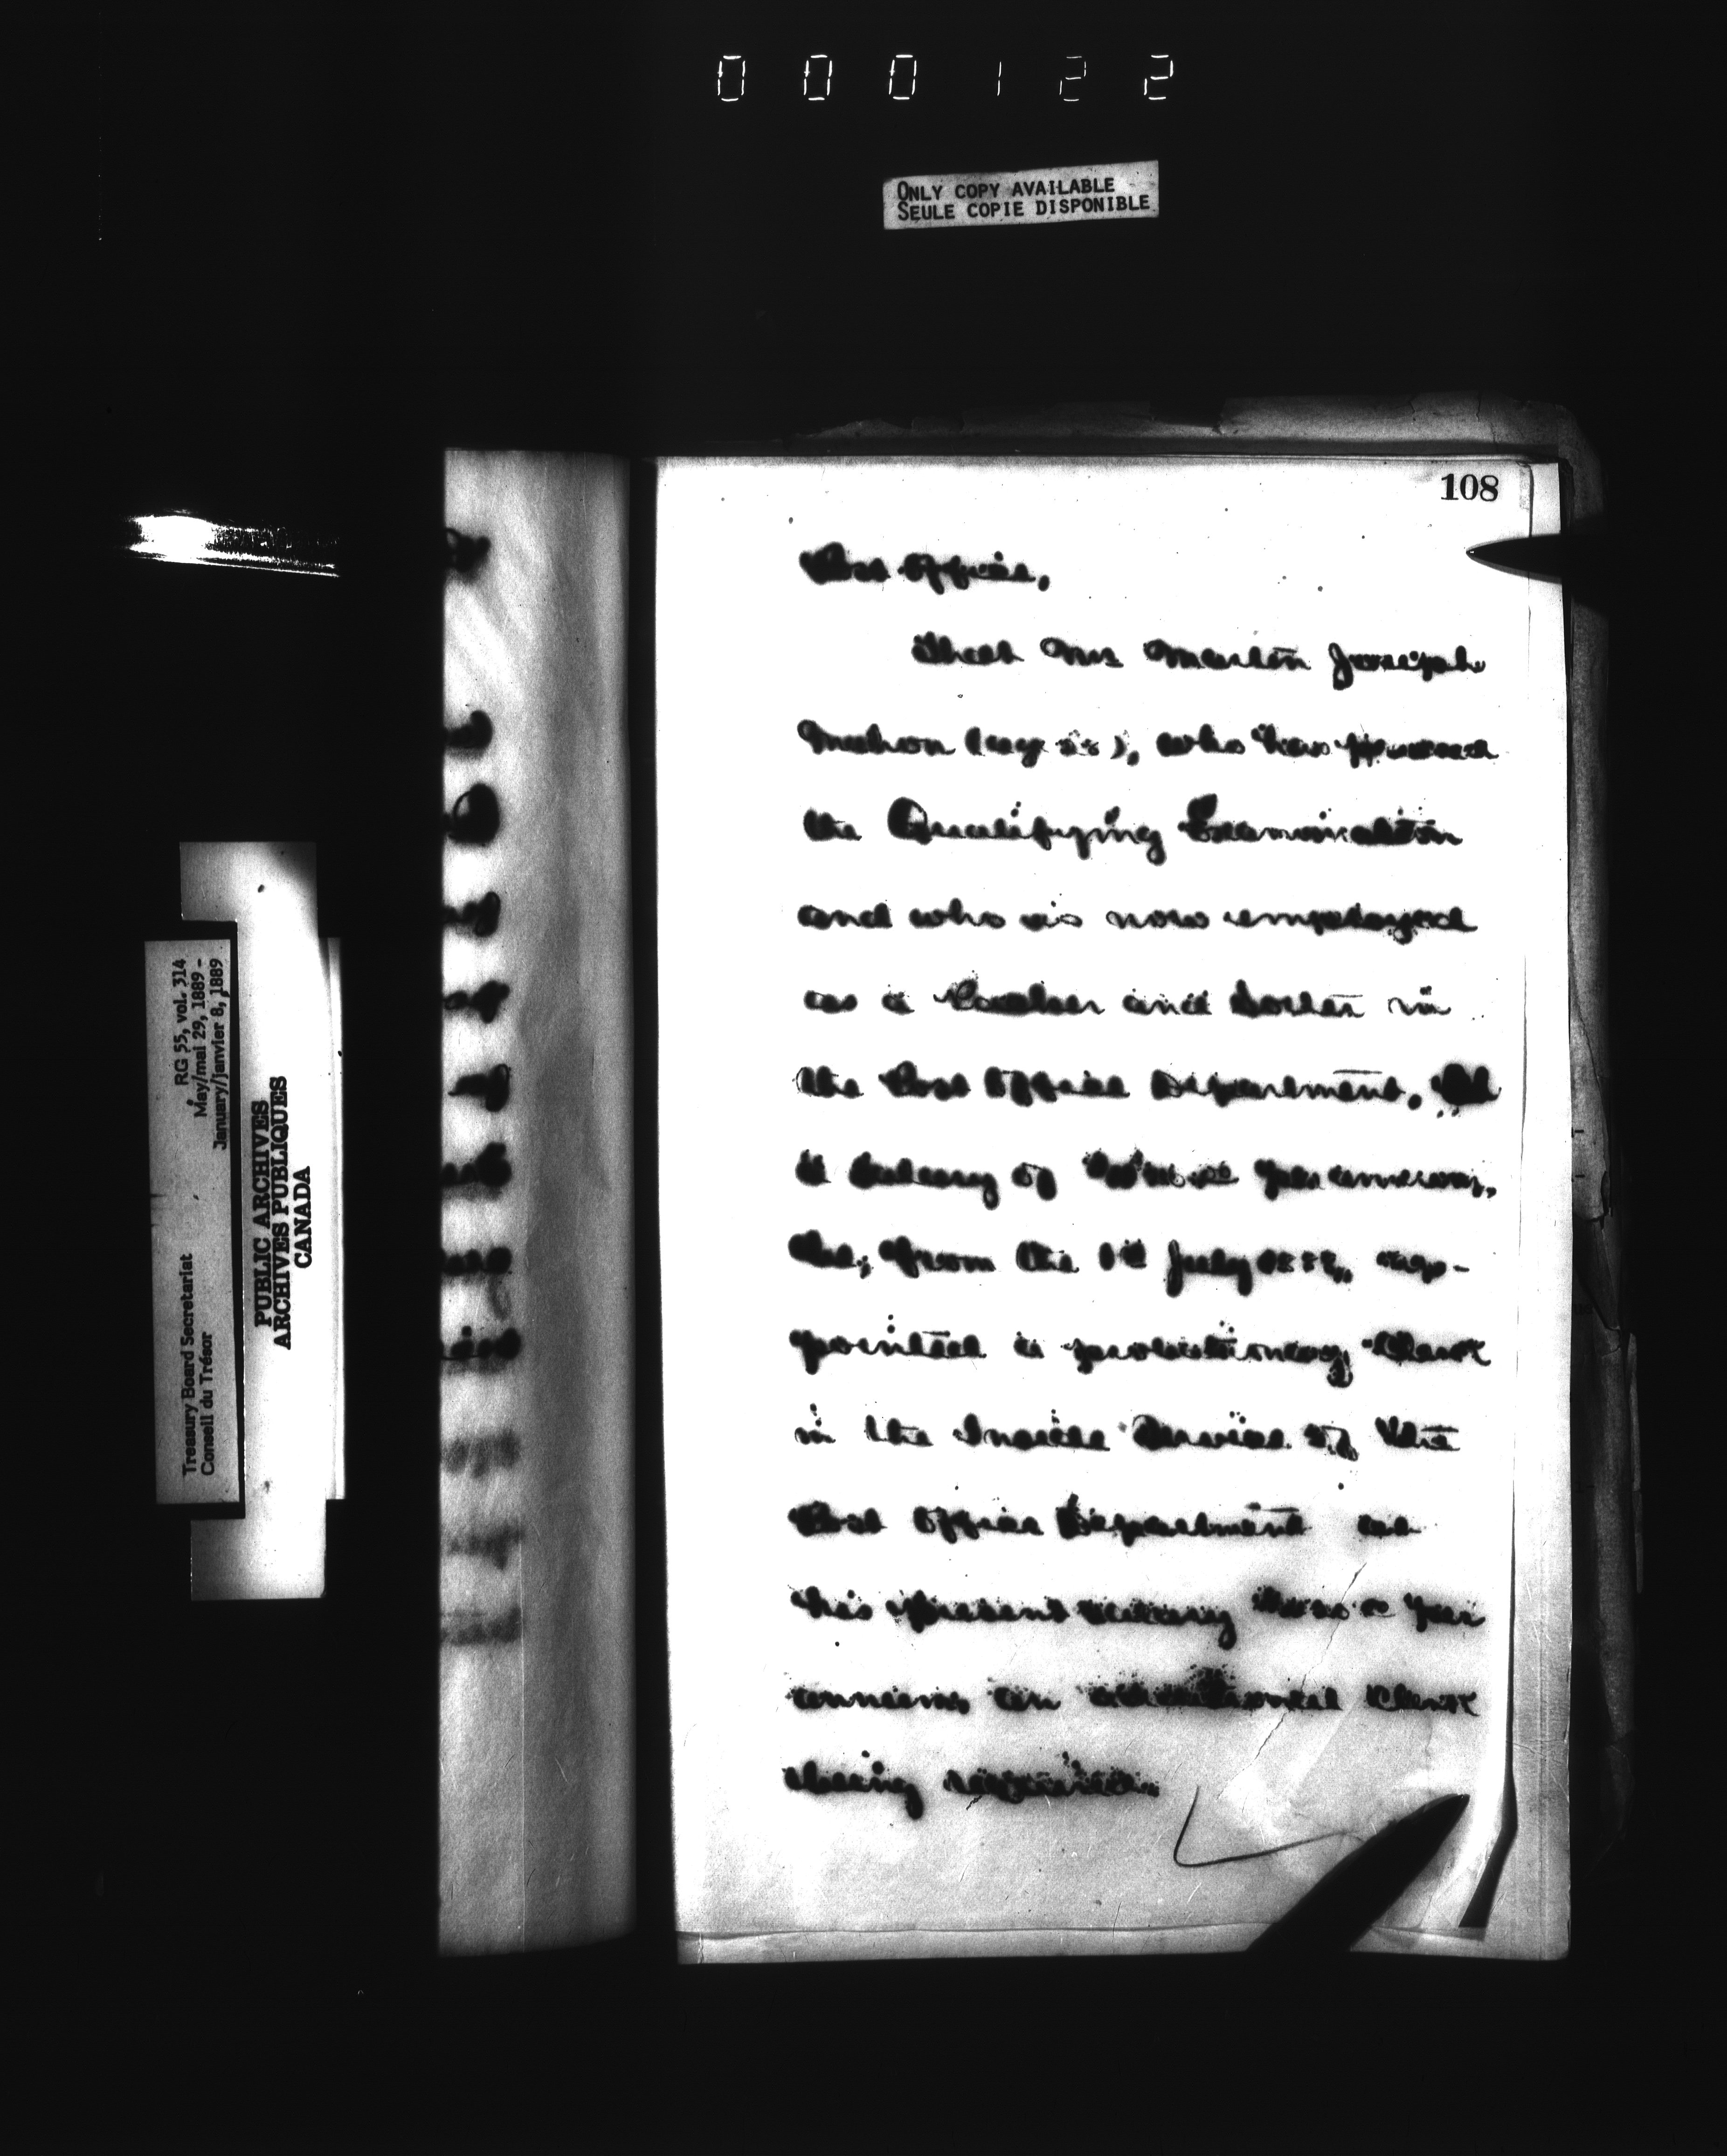 0 0 0 1 2 2
ONLY COPY AVAILABLE
SEULE COPIE DISPONIBLE
RG 55, vol. 314
May/mai 29, 1889 -
January/janvier 8, 1889
Treasury Board Secretariat
Conseil du Trésor
PUBLIC ARCHIVES
ARCHIVES PUBLIQUES
CANADA
108
Post Office,
That Mr Martin Joseph
Mahon (age ), who has passed
the Qualifying Examination
and who is now employed
as a and Sorter in
the Post Office Department, at
a Salary of per annum,
be, from the 1st July ap-
pointed a probationary Clerk
in the Inside Service of the
Post Office Department at
his present salary per
annum, an additional Clerk
being required.